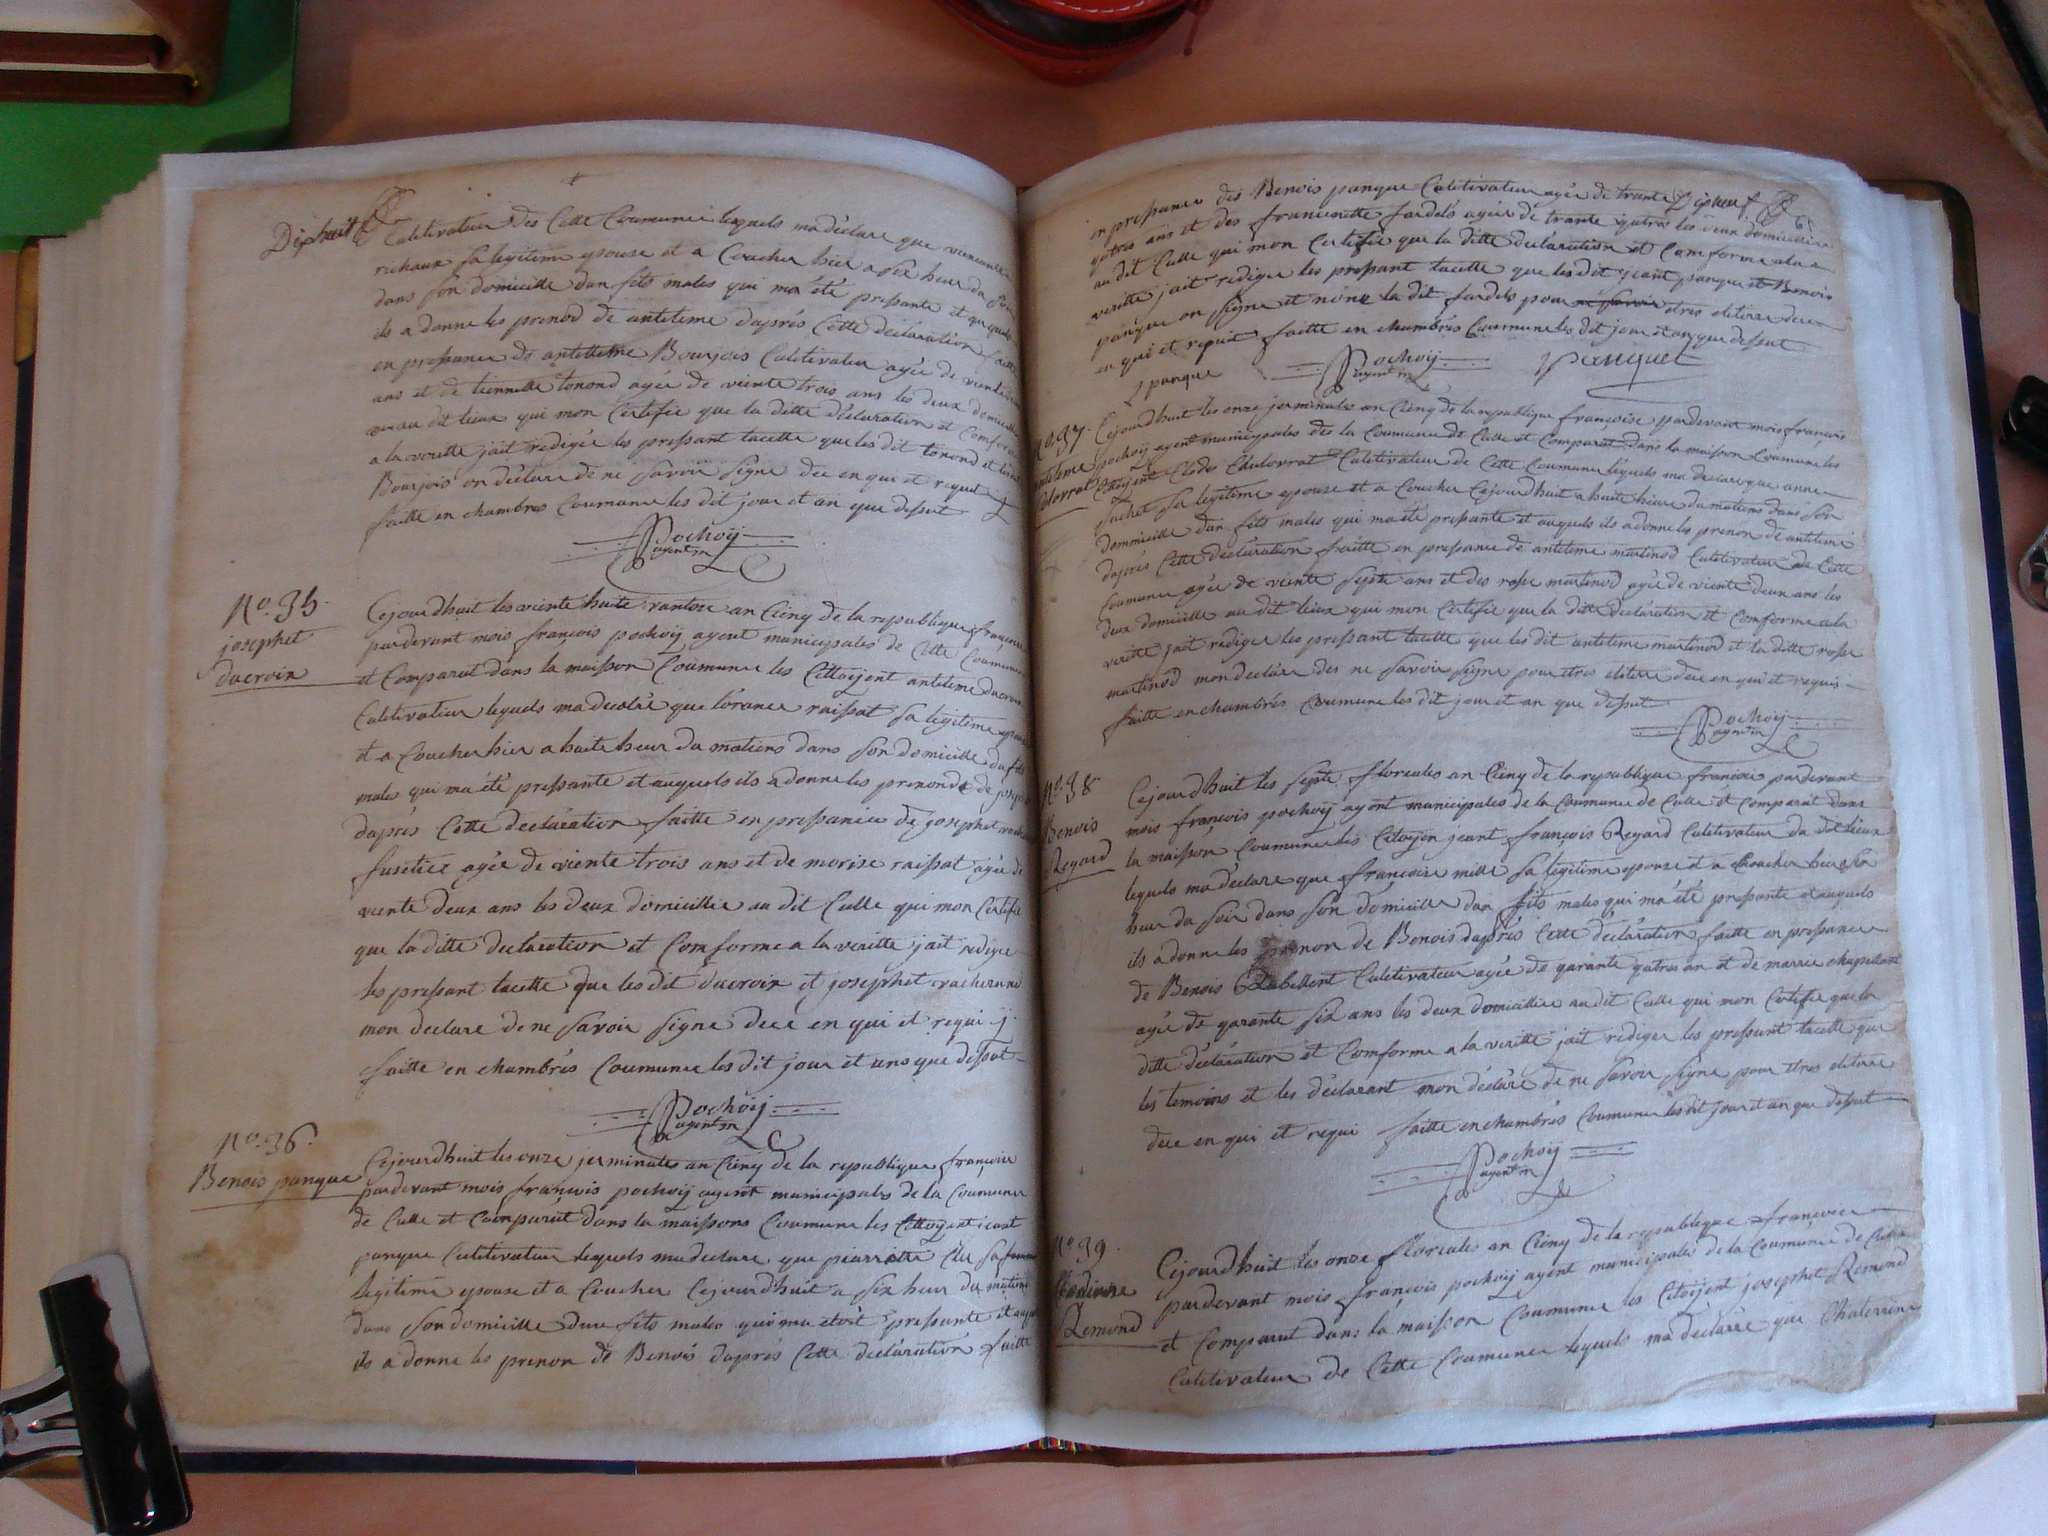 Diphuit
Cultivateur des Cette Coumune lequels ma déclare que
richaux sa legitime epouse et a Coucher hier a six heur du
dans son domicille dun fits males qui ma été pressante et
ils a donne les prenod de anteleme daprés Cette déclaration faitte
en pressance de anteleme Bourjois Cultivateur agée de
ans et de tiennette tonond agée de viente trois ans les deux
au dit lieux qui mon Certifie que la ditte déclaration et
a la veritte jait redigée les pressant lacette que les dit tonond et
Bourjois on declare de ne savoir signe dee en qui et requet
faitte en chambres Coumune les dit jour et an que dessut
Pochoÿ
agent m
No. 35.
josephet
ducroix
Cejourdhuit les viente huite vantose an Cienq de la republique
pardevant mois françois pochoÿ agent municipales de Cette Coumune
et Comparut dans la maisson Coumune les Cittoÿent anteleme ducroix
Cultivateur lequels ma declare que lorance raissat sa legitime epouse
et a Coucher hier a huite heur du matiens dans son domicille du fits
males qui ma été pressante et auquels ils a donne les prenond de
daprés Cette declaration faitte en pressance de josephet
agée de viente trois ans et de morise raissat agée de
viente deux ans les deux domicillie au dit Culle qui mon Certifie
que la ditte declaration et Comforme a la veritte jait redige
les pressant lacette que les dit ducroix et josephet
mon declare de ne savoir signe dece en qui et requi j.
faitte en chambrés Coumune les dit jour et ans que dessut
Pochoÿ
agent m
No. 36.
Benois panque
Cejourdhuit les onze jerminales an Cienq de la republique françoise
pardevant mois françois pochoÿ agent municipales de la Coumune
de Culle et Comparut dans la maissons Coumune les Cittoyent jeant
panque Cultivateur lequels ma declare que pierrette sa femme
legitime epouse et a Coucher Cejourdhuit a six heur du matiens
dans son domicille dun fits males qui ma etoit pressante et
ils a donne les prenon de Benois daprés Cette declaration faitte
Dipneuf
en pressance des Benois panque Cultivateur agée de trante
quatres ans et des francoisette fardels agée de trante quatres les deux domicillie
au dit Culle qui mon Certifié que la ditte declaration et Comforme a la
veritte jait redige les pressant lacette que les dit jeant panque et Benois
panque on signe et none la dit fardels pour etres eliterre dee
en qui et requit faitte en chambrés Coumune les dit jour et an que dessut
j panque
Pochoÿ
agent m
panquet
No. 37.
anteleme
Cejourdhuit les onze jerminales an Cienq de la republique françoise pardevant mois francois
pochoÿ agent municipales des la Coumune de Culle et Comparut dans la maisson Coumune les
Citoÿent Clodes Chalovrat Cultivateur de Cette Coumune lequels ma declare que anne
suchet sa legitime epouse et a Coucher Cejourdhuit a huite heure du matiens dans son
dommicille dun fits males qui ma été pressante et auquels ils a donne les prenon de anteleme
daprés Cette declaration faitte en pressance de anteleme martinod Cultivateur de Cette
Coumune agée de viente septe ans et des rose martinod agée de viente deux ans les
deux domicille au dit lieux qui mon Certifie que la ditte declaration et Comforme a la
veritte jait rediger les pressant lacette que les dit anteleme martinod et la ditte rose
martinod mon declare des ne savoir signe pour etres eliterre dece en qui et requis
faitte en chambrés Coumune les dit jour et an que dessut
Pochoÿ
agent m
No. 38
Benois
Regard
Cejourdhuit les septe floreales an Cienq de la republique francois pardevant
mois françois pochoÿ agent municipales de la Coumune de Culle et Comparut dans
la maisson Coumune les Citoyen jeant françois Regard Cultivateur du dit lieux
lequels ma declare que francoise mille sa legitime epouse et a Coucher hier a six
heur du soir dans son domicille dun fits males qui ma été pressante et auquels
ils a donne les prenon de Benois daprés Cette déclaration faitte en pressance
de Benois Cultivateur agée de qarante quatres an et de marrie chapellant
agée de qarante six ans les deux domicillie au dit Culle qui mon Certifie que la
ditte déclaration et Comforme a la veritte jait rediger les pressant lacette que
les temoins et les declarant mon déclare de ne savoir signe pour etres eliterre
dece en qui et requi faitte en chambrés Coumune les dit jour et an que dessut
Pochoÿ
agent m
No. 39.
Remond
Cejourdhuit les onze floreales an Cienq de la republique francoise
pardevant mois françois pochoÿ agent municipales de la Coumune de Culle
et Comparut dans la maisson Coumune les Citoÿent josephet Remond
Cultivateur de Cette Coumune lequels ma declarre que Chaterrine